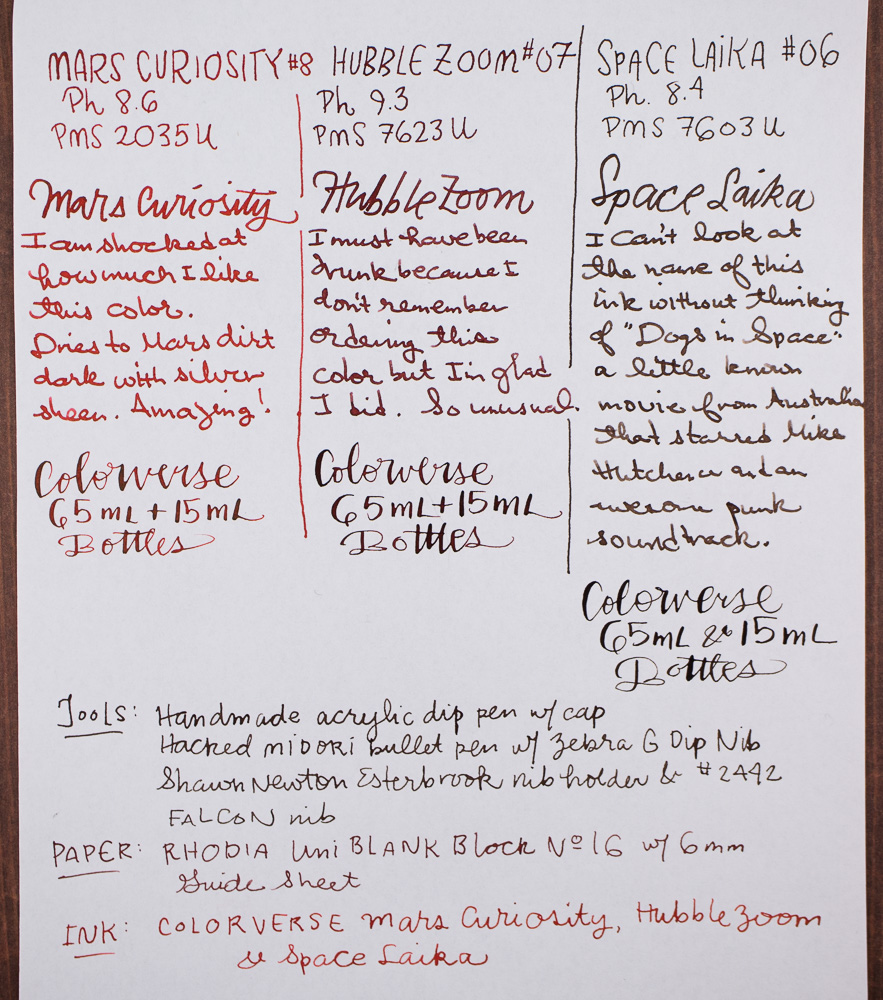 MARS CURIOSITY #8
Ph 8.6
PMS 2035U
Mars Curiosity
I am shocked at
how much I like
this color.
Dries to Mars dirt
dark with silver
sheen. Amazing!
Colorverse
65mL + 15mL
Bottles
HUBBLE ZOOM #07
Ph 9.3
PMS 7623U
Hubble Zoom
I must have been
drunk because I
don't remember
ordering this
color but I'm glad
I did. So unusual.
Colorverse
65mL + 15mL
Bottles
SPACE LAIKA #06
Ph. 8.4
PMS 7603U
Space Laika
I can't look at
the name of this
ink without thinking
of "Dogs in Space"
a little known
movie from Australia
that starred Mike
Hutchence and an
awesome punk
soundtrack.
Colorverse
65mL & 15mL
Bottles
Tools: Handmade acrylic dip pen w/ cap
Hacked MIDORI bullet pen w/ Zebra G Dip Nib
Shawn Newton Esterbrook nib holder & #2442
FALCON nib
PAPER: RHODIA Uni BLANK Block Nº 16 w/ 6mm
Guide Sheet
INK: COLORVERSE Mars Curiosity, Hubble Zoom
& Space Laika